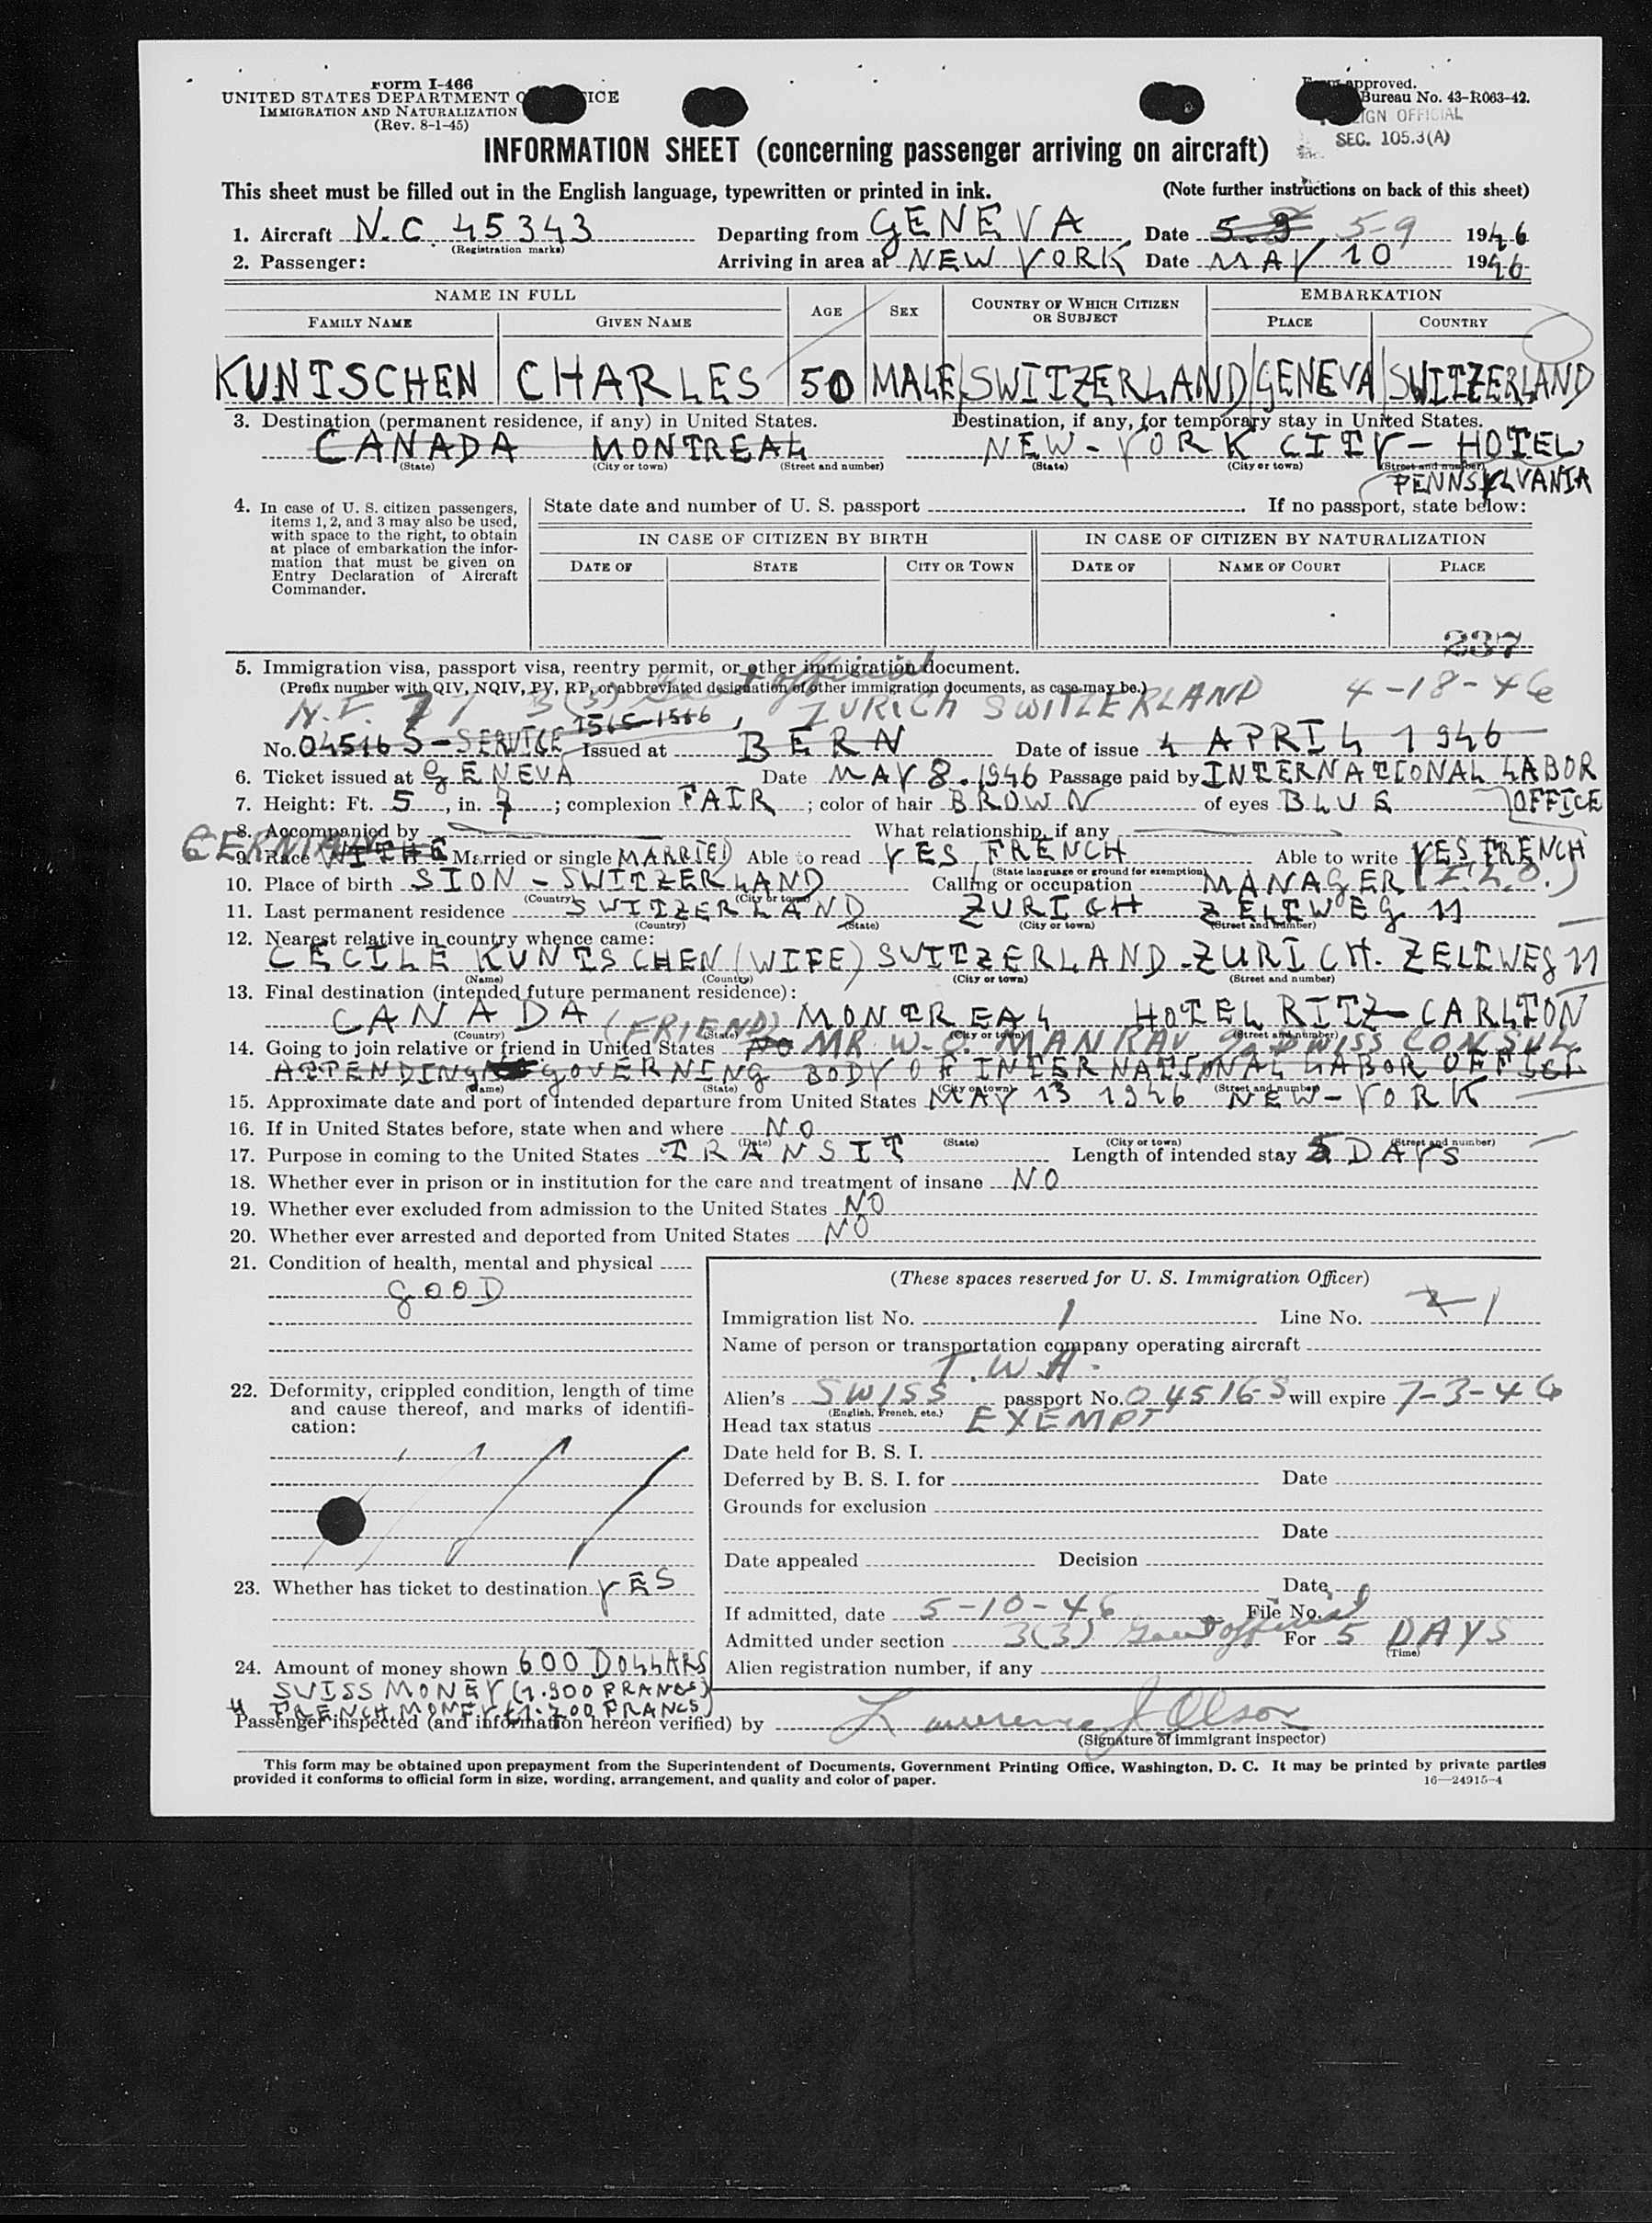 Form I-466
UNITED STATES DEPARTMENT
IMMIGRATION AND NATURALIZATION
(Rev. 8-1-45)
Form approved.
Bureau No. 43-R063-42.
OFFICIAL
SEC. 105.3(A)
INFORMATION SHEET (concerning passenger arriving on aircraft)
This sheet must be filled out in the English language, typewritten or printed in ink. (Note further instructions on back of this sheet)
1. Aircraft N.C. 45343 Departing from GENEVA Date 5-9 5-9 1946
(Registration marks)
2. Passenger: Arriving in area at NEW YORK Date MAY 10 1946
NAME IN FULL AGE SEX COUNTRY OF WHICH CITIZEN OR SUBJECT EMBARKATION
FAMILY NAME GIVEN NAME PLACE COUNTRY
KUNTSCHEN CHARLES 50 MALE SWITZERLAND GENEVA SWITZERLAND
3. Destination (permanent residence, if any) in United States. Destination, if any, for temporary stay in United States.
CANADA MONTREAL NEW-YORK CITY - HOTEL
(State) (City or town) (Street and number) (State) (City or town) (Street and number)
PENNSYLVANIA
4. In case of U. S. citizen passengers, items 1, 2, and 3 may also be used, with space to the right, to obtain at place of embarkation the information that must be given on Entry Declaration of Aircraft Commander.
State date and number of U. S. passport . If no passport, state below:
IN CASE OF CITIZEN BY BIRTH IN CASE OF CITIZEN BY NATURALIZATION
DATE OF STATE CITY OR TOWN DATE OF NAME OF COURT PLACE
237
5. Immigration visa, passport visa, reentry permit, or other immigration document.
(Prefix number with QIV, NQIV, PV, RP, or abbreviated designation of other immigration documents, as case may be.)
3(3) Gov't official
ZURICH SWITZERLAND 4-18-46
No. 04516 S - SERVICE 1565-1566, Issued at BERN Date of issue 4 APRIL 1946
6. Ticket issued at GENEVA Date MAY 8. 1946 Passage paid by INTERNATIONAL LABOR
OFFICE
7. Height: Ft. 5, in. 7; complexion FAIR; color of hair BROWN of eyes BLUE
8. Accompanied by What relationship, if any
GERMAN
9. Race Married or single MARRIED Able to read YES FRENCH Able to write YES FRENCH
(State language or ground for exemption)
10. Place of birth SION - SWITZERLAND Calling or occupation MANAGER (I.L.O.)
(Country) (City or town)
11. Last permanent residence SWITZERLAND ZURICH ZELTWEG 11
(Country) (State) (City or town) (Street and number)
12. Nearest relative in country whence came:
CECILE KUNTSCHEN (WIFE) SWITZERLAND - ZURICH - ZELTWEG 11
(Name) (Country) (City or town) (Street and number)
13. Final destination (intended future permanent residence):
CANADA MONTREAL HOTEL RITZ-CARLTON
(Country) (State) (City or town) (Street and number)
(FRIEND)
14. Going to join relative or friend in United States NO MR W. C. MANRAV % SWISS CONSUL
ATTENDING GOVERNING BODY OF INTERNATIONAL LABOR OFFICE
(Name) (State) (City or town) (Street and number)
15. Approximate date and port of intended departure from United States MAY 13 1946 NEW-YORK
16. If in United States before, state when and where NO
(Date) (State) (City or town) (Street and number)
17. Purpose in coming to the United States TRANSIT Length of intended stay 5 DAYS
18. Whether ever in prison or in institution for the care and treatment of insane NO
19. Whether ever excluded from admission to the United States NO
20. Whether ever arrested and deported from United States NO
21. Condition of health, mental and physical
GOOD
22. Deformity, crippled condition, length of time and cause thereof, and marks of identification:
23. Whether has ticket to destination YES
24. Amount of money shown 600 DOLLARS
SWISS MONEY (1.900 FRANCS)
FRENCH MONEY (1.700 FRANCS)
(These spaces reserved for U. S. Immigration Officer)
Immigration list No. 1 Line No. 1
Name of person or transportation company operating aircraft
T.W.A.
Alien's SWISS passport No. 04516-S will expire 7-3-46
(English, French, etc.)
Head tax status EXEMPT
Date held for B. S. I.
Deferred by B. S. I. for Date
Grounds for exclusion
Date
Date appealed Decision
Date
If admitted, date 5-10-46 File No.
Admitted under section 3(3) Gov't official For 5 DAYS
(Time)
Alien registration number, if any
Passenger inspected (and information hereon verified) by Lawrence J Olson
(Signature of immigrant inspector)
This form may be obtained upon prepayment from the Superintendent of Documents, Government Printing Office, Washington, D. C. It may be printed by private parties
provided it conforms to official form in size, wording, arrangement, and quality and color of paper. 16—24915-4